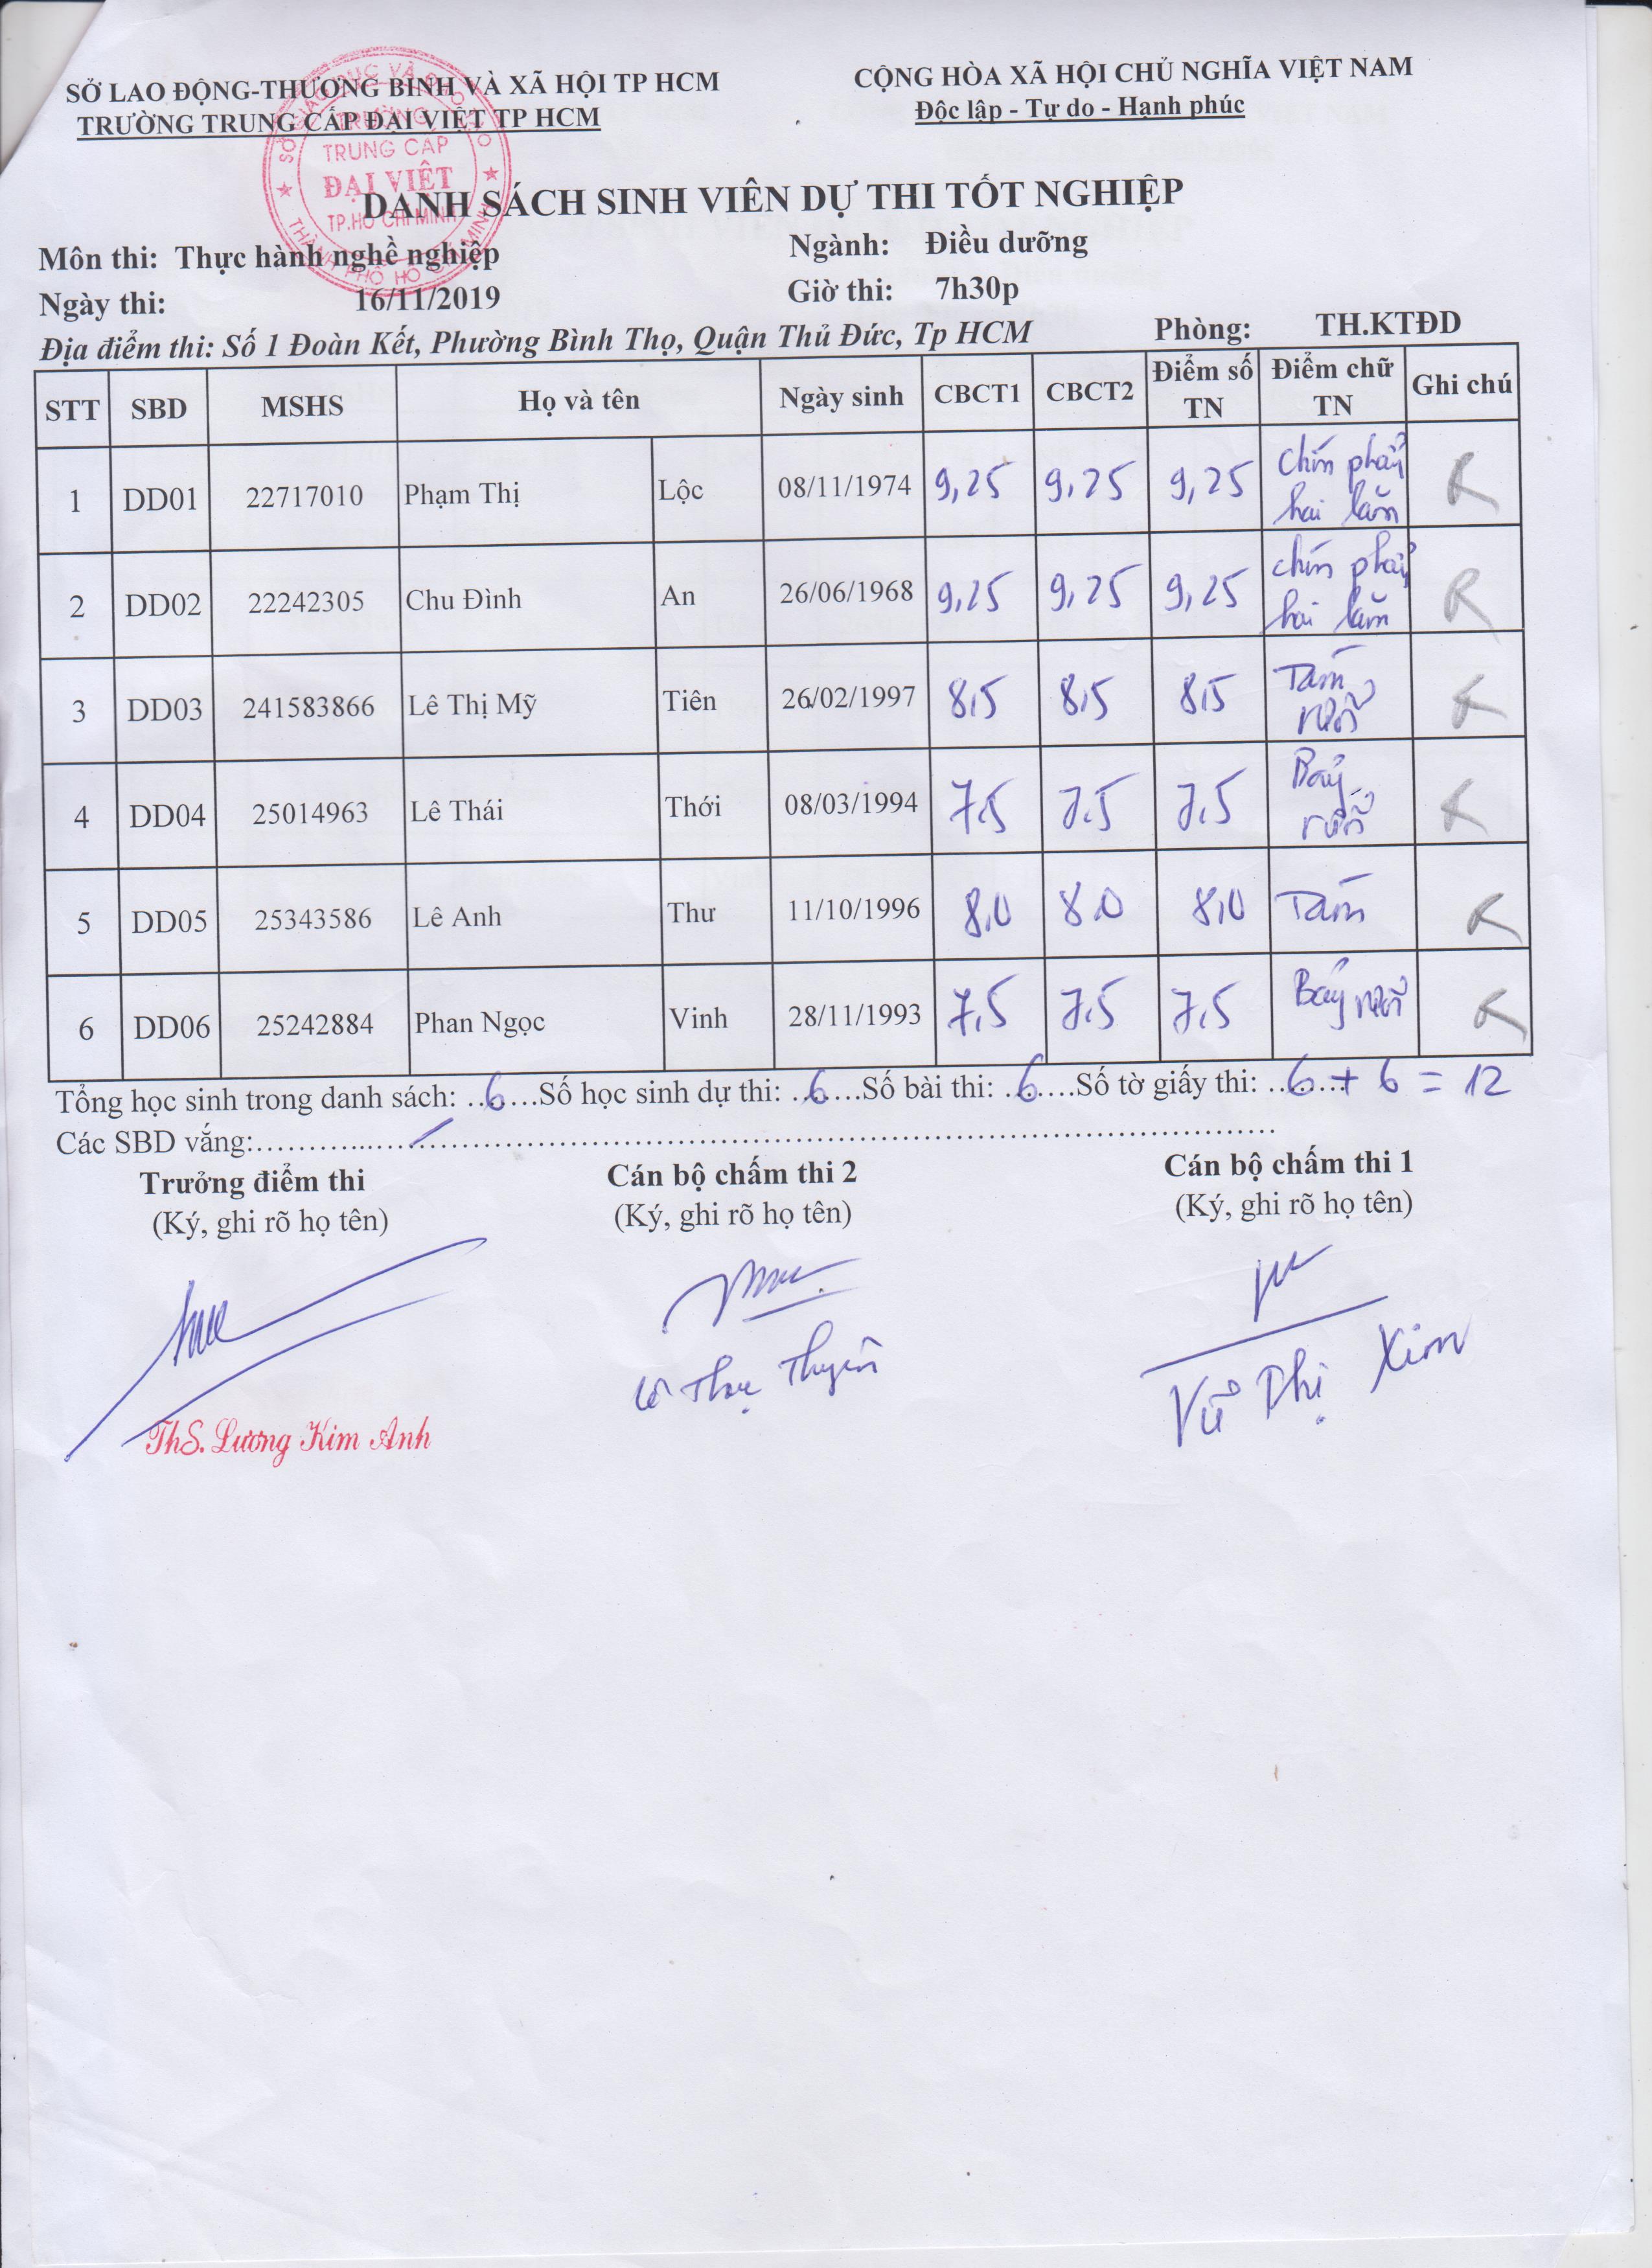 SỞ LAO ĐỘNG-THƯƠNG BINH VÀ XÃ HỘI TP HCM
TRƯỜNG TRUNG CẤP ĐẠI VIỆT TP HCM
CỘNG HÒA XÃ HỘI CHỦ NGHĨA VIỆT NAM
Độc lập - Tự do - Hạnh phúc
TRƯỜNG
TRUNG CẤP
ĐẠI VIỆT
TP.HỒ CHÍ MINH
DANH SÁCH SINH VIÊN DỰ THI TỐT NGHIỆP
Môn thi: Thực hành nghề nghiệp Ngành: Điều dưỡng
Ngày thi: 16/11/2019 Giờ thi: 7h30p
Địa điểm thi: Số 1 Đoàn Kết, Phường Bình Thọ, Quận Thủ Đức, Tp HCM Phòng: TH.KTĐD
STT SBD MSHS Họ và tên Ngày sinh CBCT1 CBCT2 Điểm số TN Điểm chữ TN Ghi chú
1 DD01 22717010 Phạm Thị Lộc 08/11/1974 9,25 9,25 9,25 Chín phẩy hai lăm
2 DD02 22242305 Chu Đình An 26/06/1968 9,25 9,25 9,25 chín phẩy hai lăm
3 DD03 241583866 Lê Thị Mỹ Tiên 26/02/1997 8,5 8,5 8,5 Tám rưỡi
4 DD04 25014963 Lê Thái Thới 08/03/1994 7,5 7,5 7,5 Bảy rưỡi
5 DD05 25343586 Lê Anh Thư 11/10/1996 8,0 8,0 8,0 Tám
6 DD06 25242884 Phan Ngọc Vinh 28/11/1993 7,5 7,5 7,5 Bảy rưỡi
Tổng học sinh trong danh sách: ..6....Số học sinh dự thi: ..6....Số bài thi: ..6....Số tờ giấy thi: ...6 + 6 = 12
Các SBD vắng:............/..........
Trưởng điểm thi Cán bộ chấm thi 2 Cán bộ chấm thi 1
(Ký, ghi rõ họ tên) (Ký, ghi rõ họ tên) (Ký, ghi rõ họ tên)
Vũ Thị Xim
ThS. Lương Kim Anh